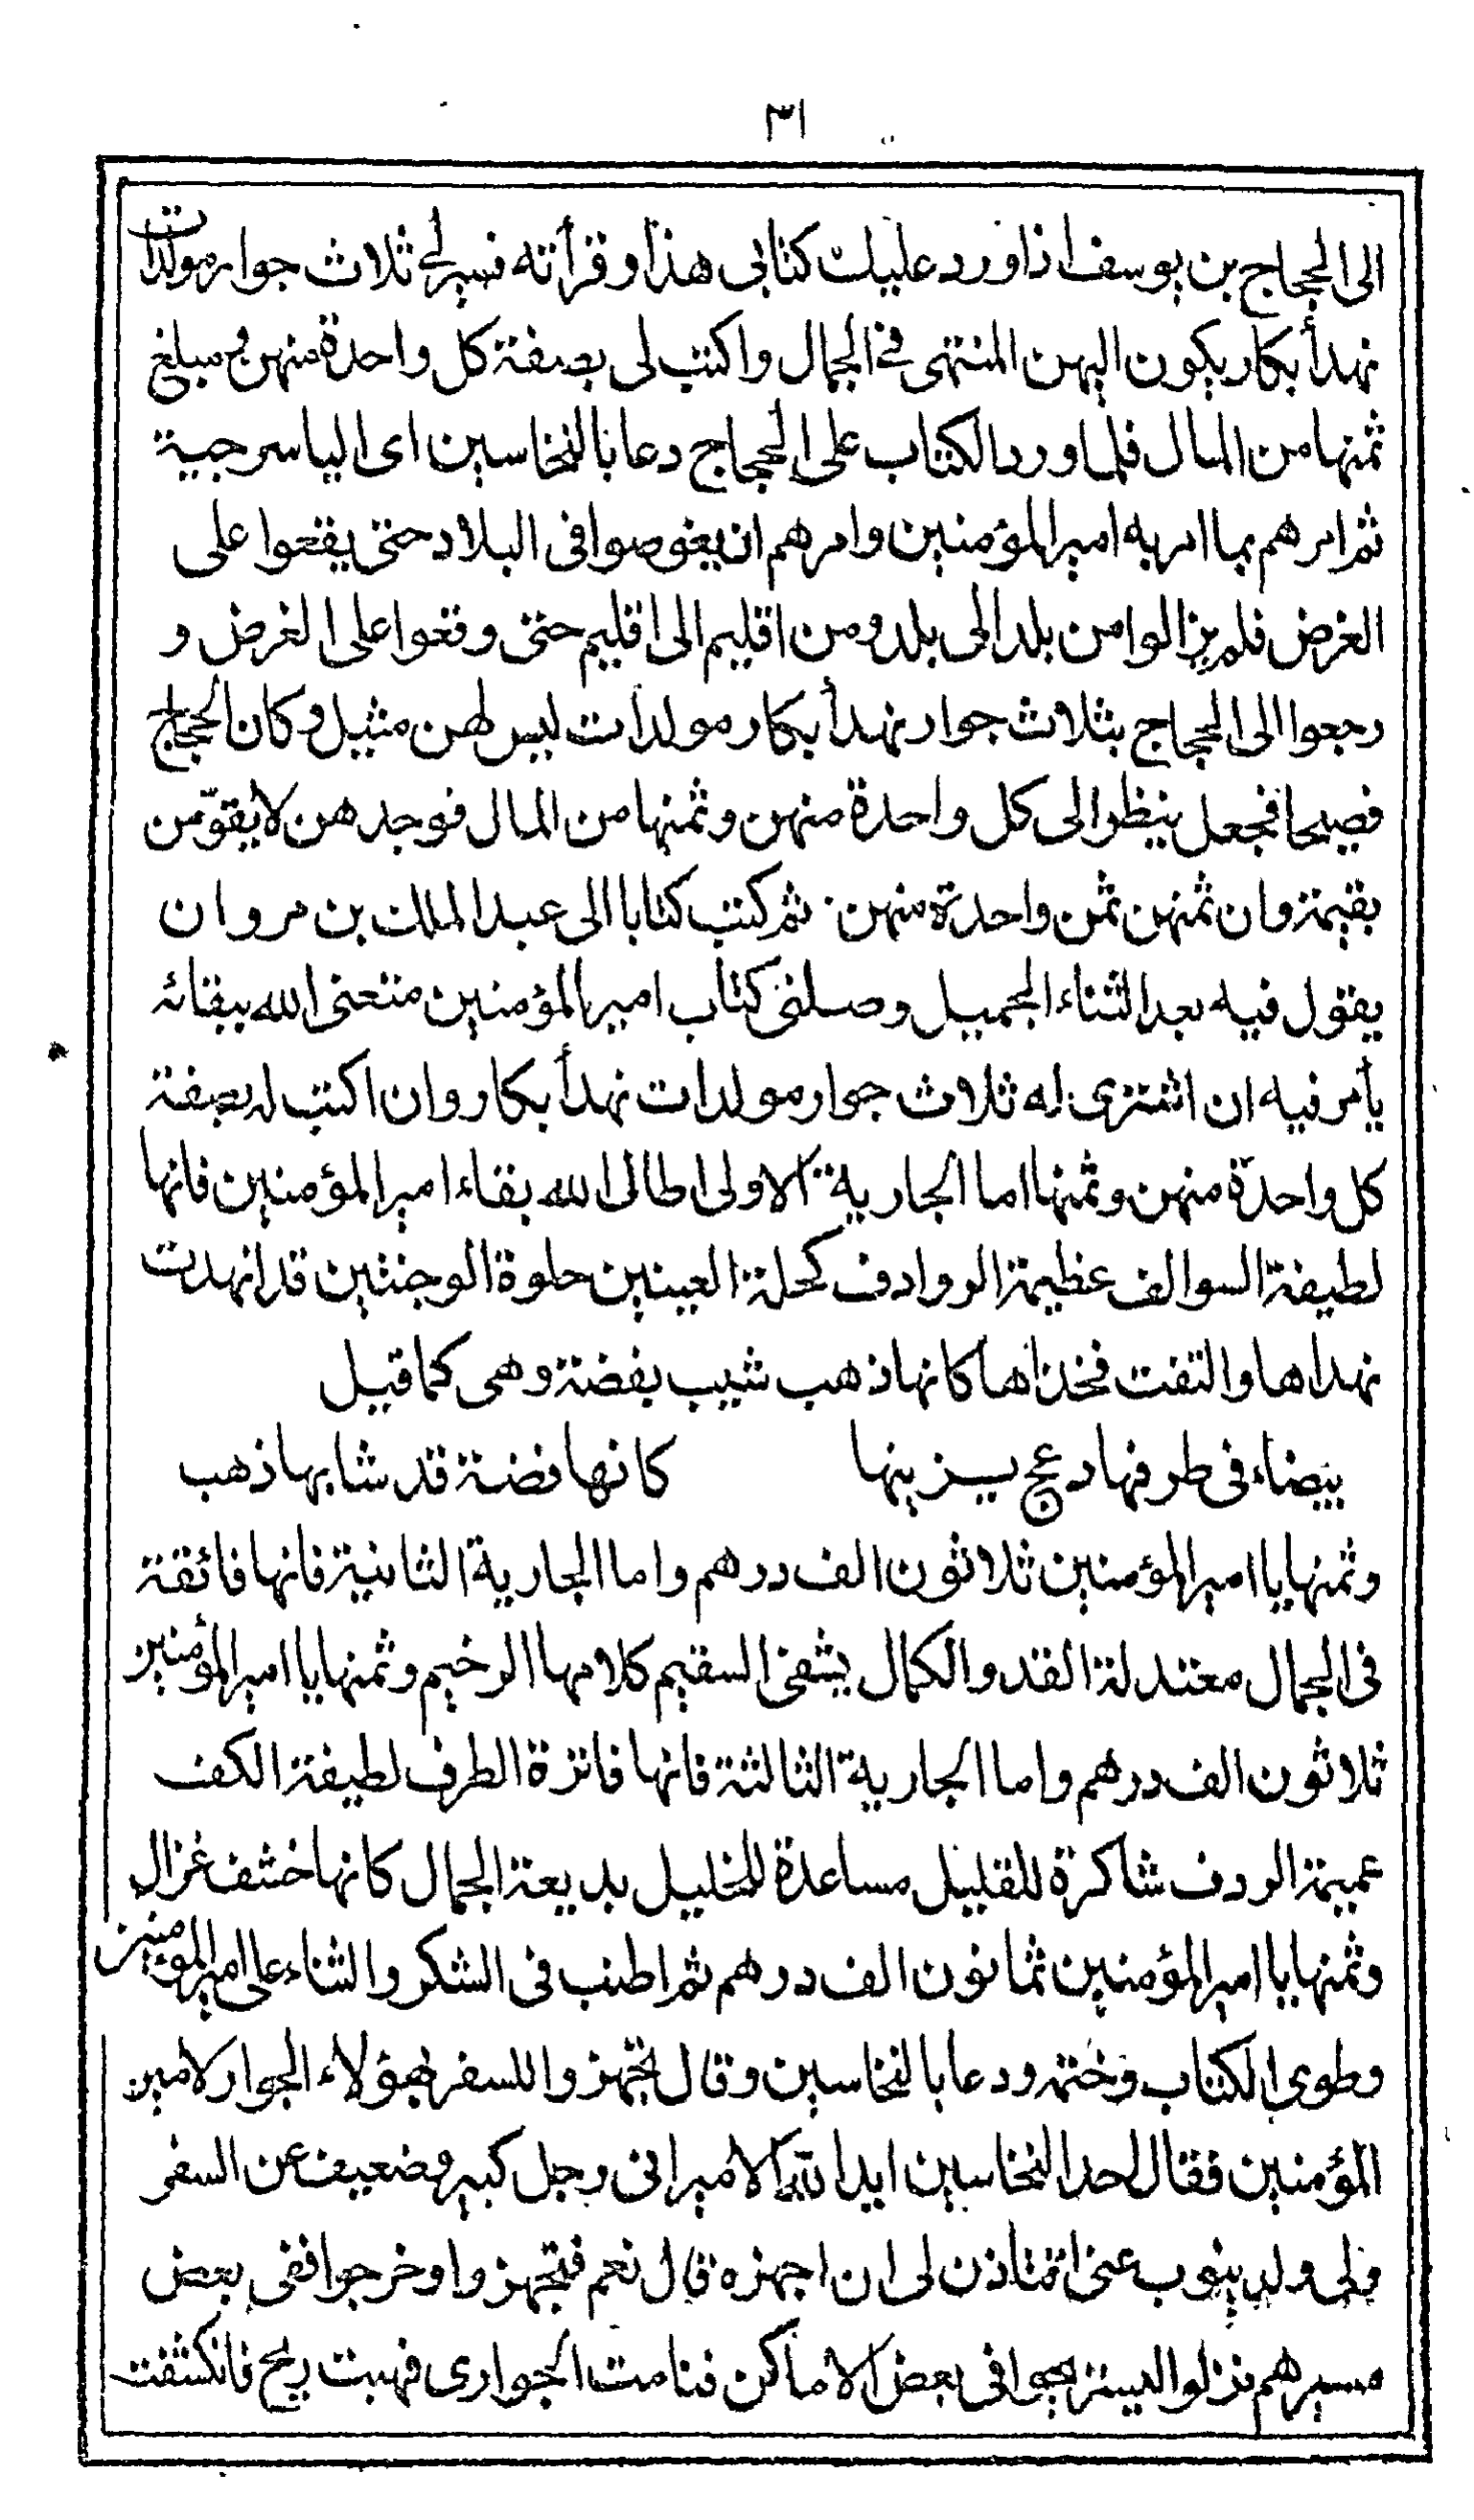 ٣١
الى الحجاج بن يوسف اذا ورد عليك كتابى هذا وقرأته فسير لى ثلاث جوار مولدات
نهدأ بكار يكون اليهن المنتهى فى الجمال واكتب لى بصفة كل واحدة منهن ومبلغ
ثمنها من المال فلما ورد الكتاب على الحجاج دعا بالنخاسين اى الياسرجية
ثم امرهم بما امر به امير المؤمنين وامرهم ان يغوصوا فى البلاد حتى يقعوا على
الغرض فلم يزالوا من بلد الى بلد ومن اقليم الى اقليم حتى وقعوا على الغرض و
رجعوا الى الحجاج بثلاث جوار نهدأ بكار مولدات ليس لهن مثيل وكان الحجاج
فصيحا فجعل ينظر الى كل واحدة منهن وثمنها من المال فوجدهن لا يقوّمن
بقيمة وان ثمنهن ثمن واحدة منهن ثم كتب كتابا الى عبد الملك بن مروان
يقول فيه بعد الثناء الجميل وصلنى كتاب امير المؤمنين متعنى الله ببقائه
يأمر فيه ان اشترى له ثلاث جوار مولدات نهدأ بكار وان اكتب له بصفة
كل واحدة منهن وثمنها اما الجارية الاولى اطال الله بقاء امير المؤمنين فانها
لطيفة السوالف عظيمة الروادف كحلة العينين حلوة الوجنتين قد انهدت
نهداها والتفت فخذاها كانها ذهب شيب بفضة وهى كما قيل
بيضاء فى طرفها دعج يزينها كانها فضة قد شابها ذهب
وثمنها يا امير المؤمنين ثلاثون الف درهم واما الجارية الثانية فانها فائقة
فى الجمال معتدلة القد والكمال يشفى السقيم كلامها الرخيم وثمنها يا امير المؤمنين
ثلاثون الف درهم واما الجارية الثالثة فانها فاترة الطرف لطيفة الكف
عميمة الردف شاكرة للقليل مساعدة للخليل بديعة الجمال كانها خشف غزال
وثمنها يا امير المؤمنين ثمانون الف درهم ثم اطنب فى الشكر والثناء على امير المؤمنين
وطوى الكتاب وختمه ودعا بالنخاسين وقال تجهزوا للسفر بهؤلاء الجوار لامير
المؤمنين فقال احد النخاسين ايد الله الامير انى رجل كبير وضعيف عن السفر
ولى ولد ينوب عنى افتأذن لى ان اجهزه قال نعم فتجهزوا وخرجوا ففى بعض
مسيرهم نزلوا ليستريحوا فى بعض الاماكن فنامت الجوارى فهبت ريح فانكشفت